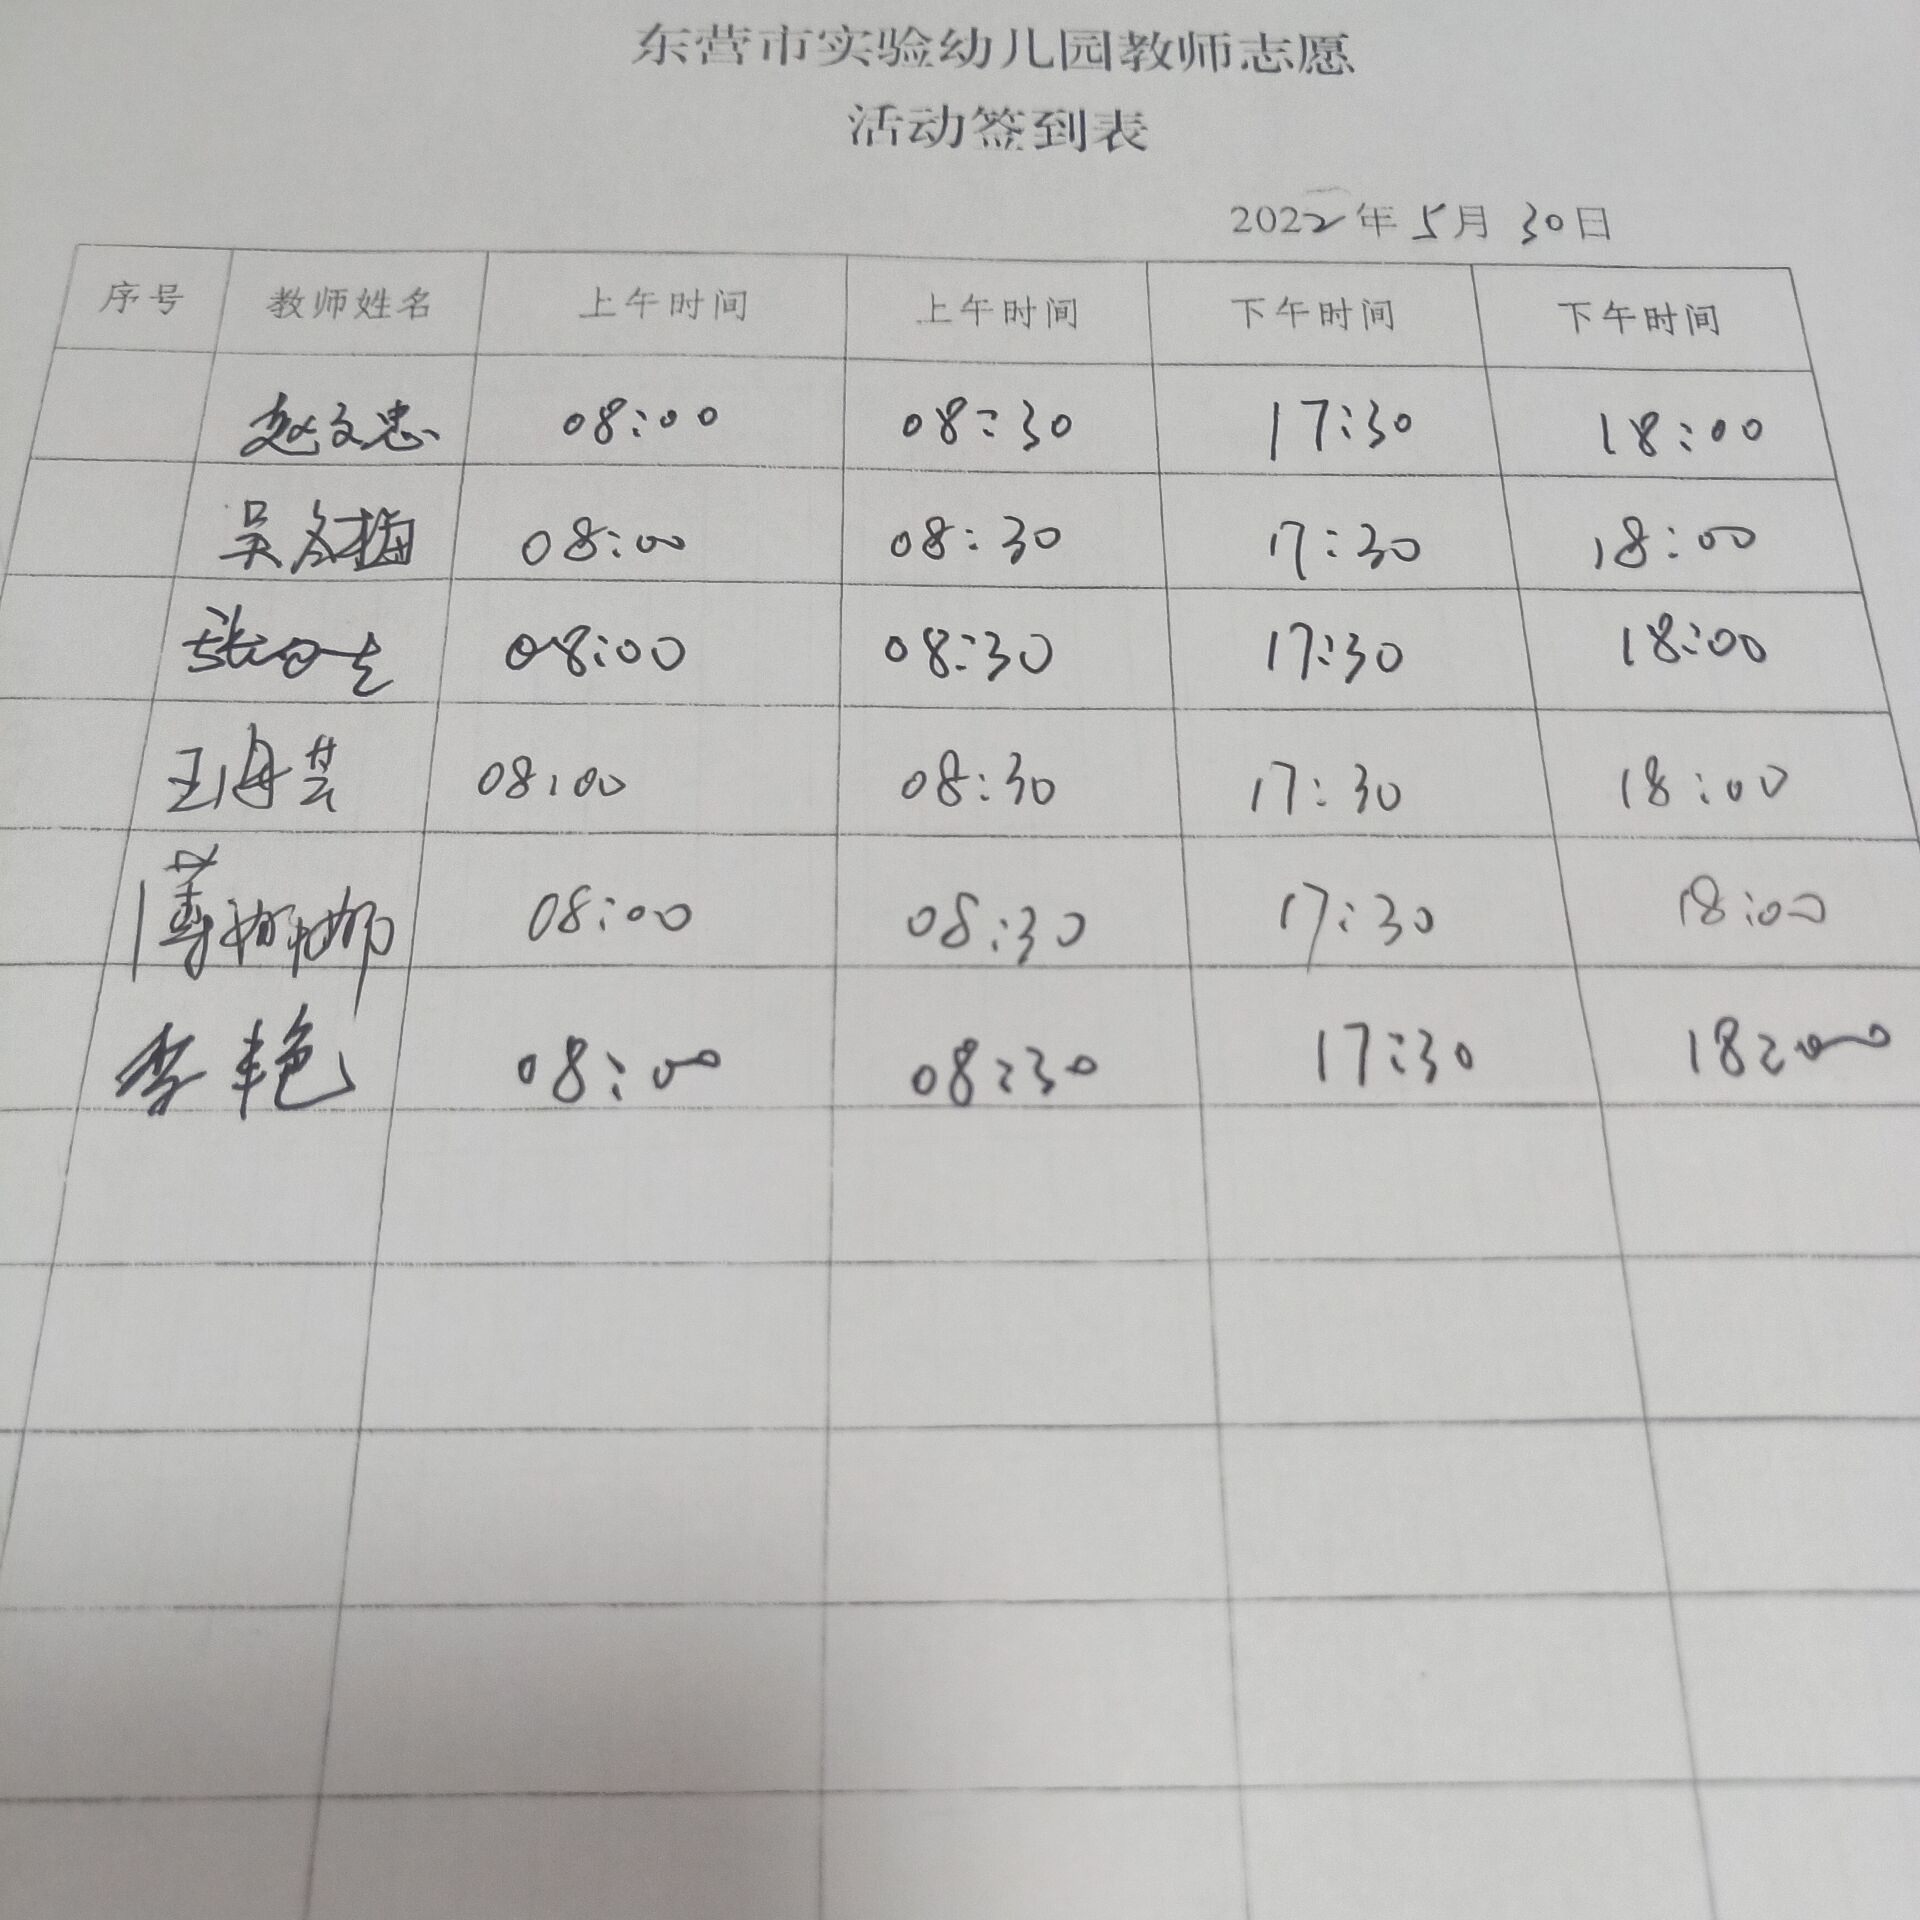 东营市实验幼儿园教师志愿
活动签到表
2022年5月30日
序号 教师姓名 上午时间 上午时间 下午时间 下午时间
赵文忠 08:00 08:30 17:30 18:00
吴冬梅 08:00 08:30 17:30 18:00
张 08:00 08:30 17:30 18:00
王海芸 08:00 08:30 17:30 18:00
薄娜娜 08:00 08:30 17:30 18:00
李艳 08:00 08:30 17:30 18:00